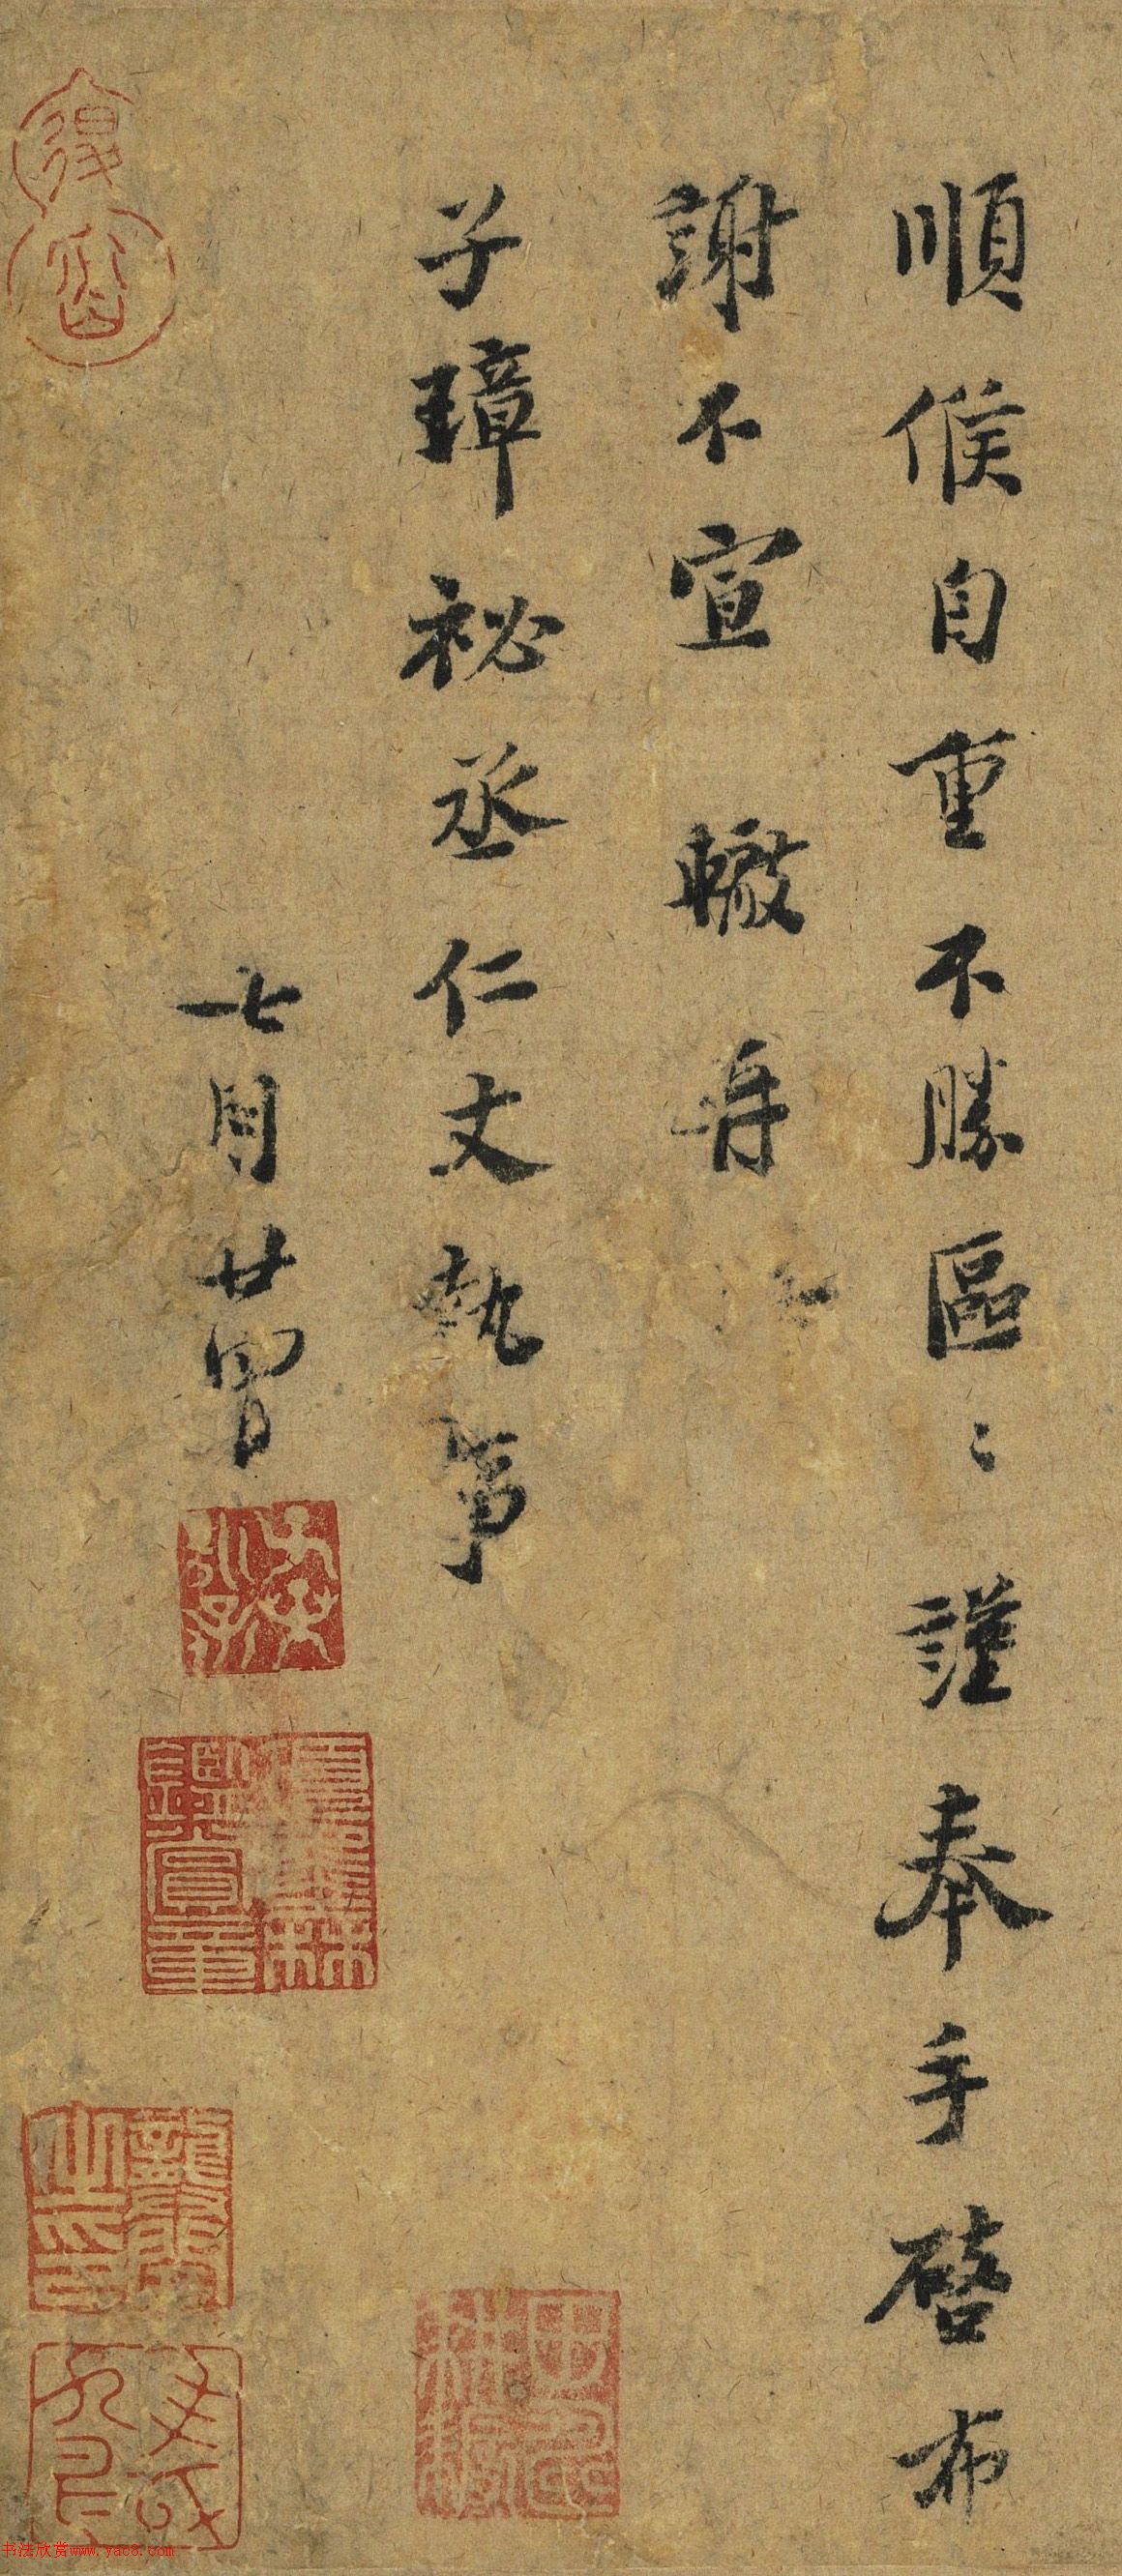 順候自重不勝區〻謹奉手啓布
謝不宣 轍再
子璋祕丞仁丈執事
七月廿
書法欣赏www.yac8.com